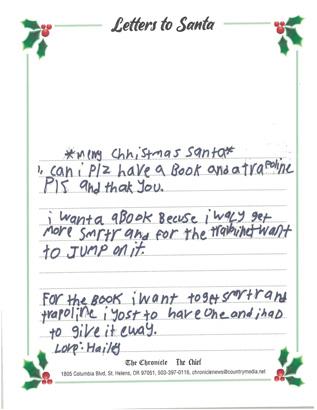 Letters to Santa
*merry Chhistmas Santa*
1, can i Plz have a Book and a trapoline
Pls and thak you.
i want a aBook Becuse i waly get
more Smrtr and for the
want
to JUMP on it.
FOr the BOOK i want to get smrtr and
trapoline i yost to have one and i had
to give it eway.
Love: Hailey
The Chronicle The Chief
1805 Columbia Blvd, St. Helens, OR 97051, 503-397-0116, chroniclenews@countrymedia.net